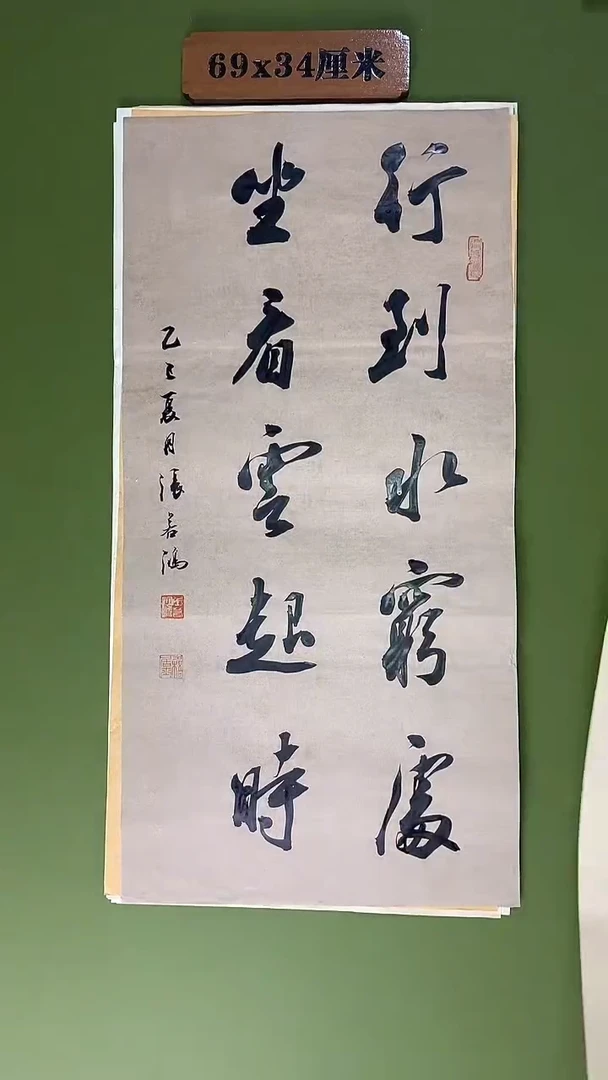 69x34厘米
行到水窮處
坐看雲起時
乙巳夏月張若鴻